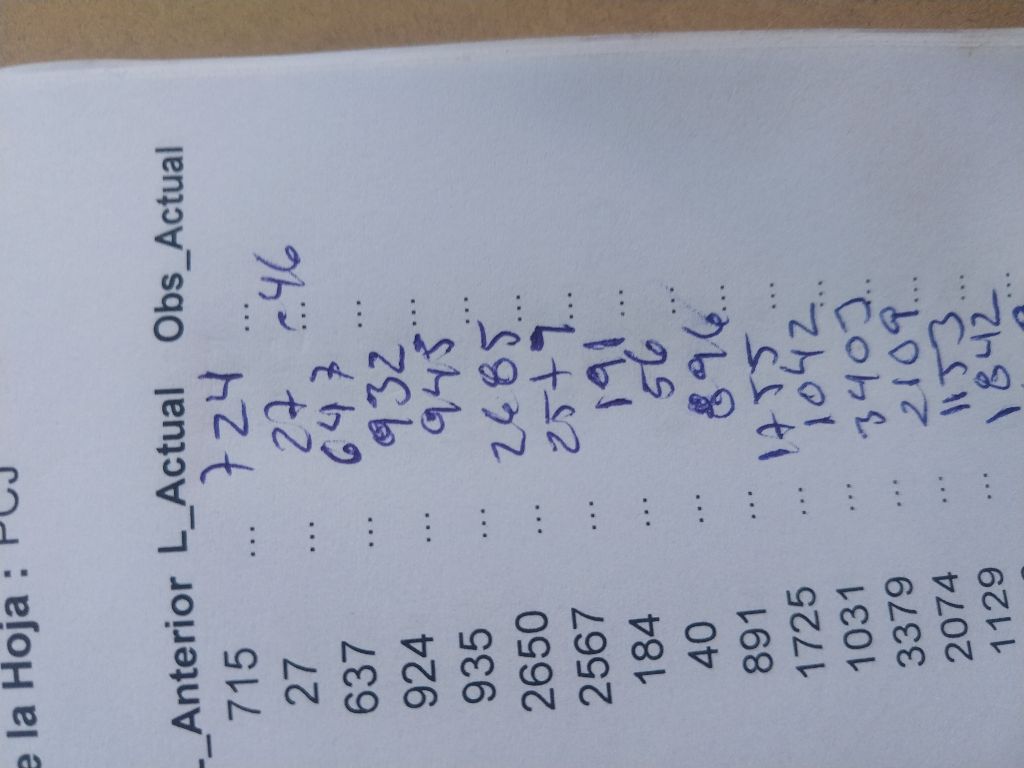 e la Hoja : PCJ
_Anterior L_Actual Obs_Actual
715 ... 724 ...
27 ... 27 ... -46
637 ... 647 ...
924 ... 932 ...
935 ... 945 ...
2650 ... 2685 ...
2567 ... 2579 ...
184 ... 191 ...
40 ... 56 ...
891 ... 896 ...
1725 ... 1755 ...
1031 ... 1042 ...
3379 ... 3403 ...
2074 ... 2109 ...
1129 ... 1153 ...
1842 ...